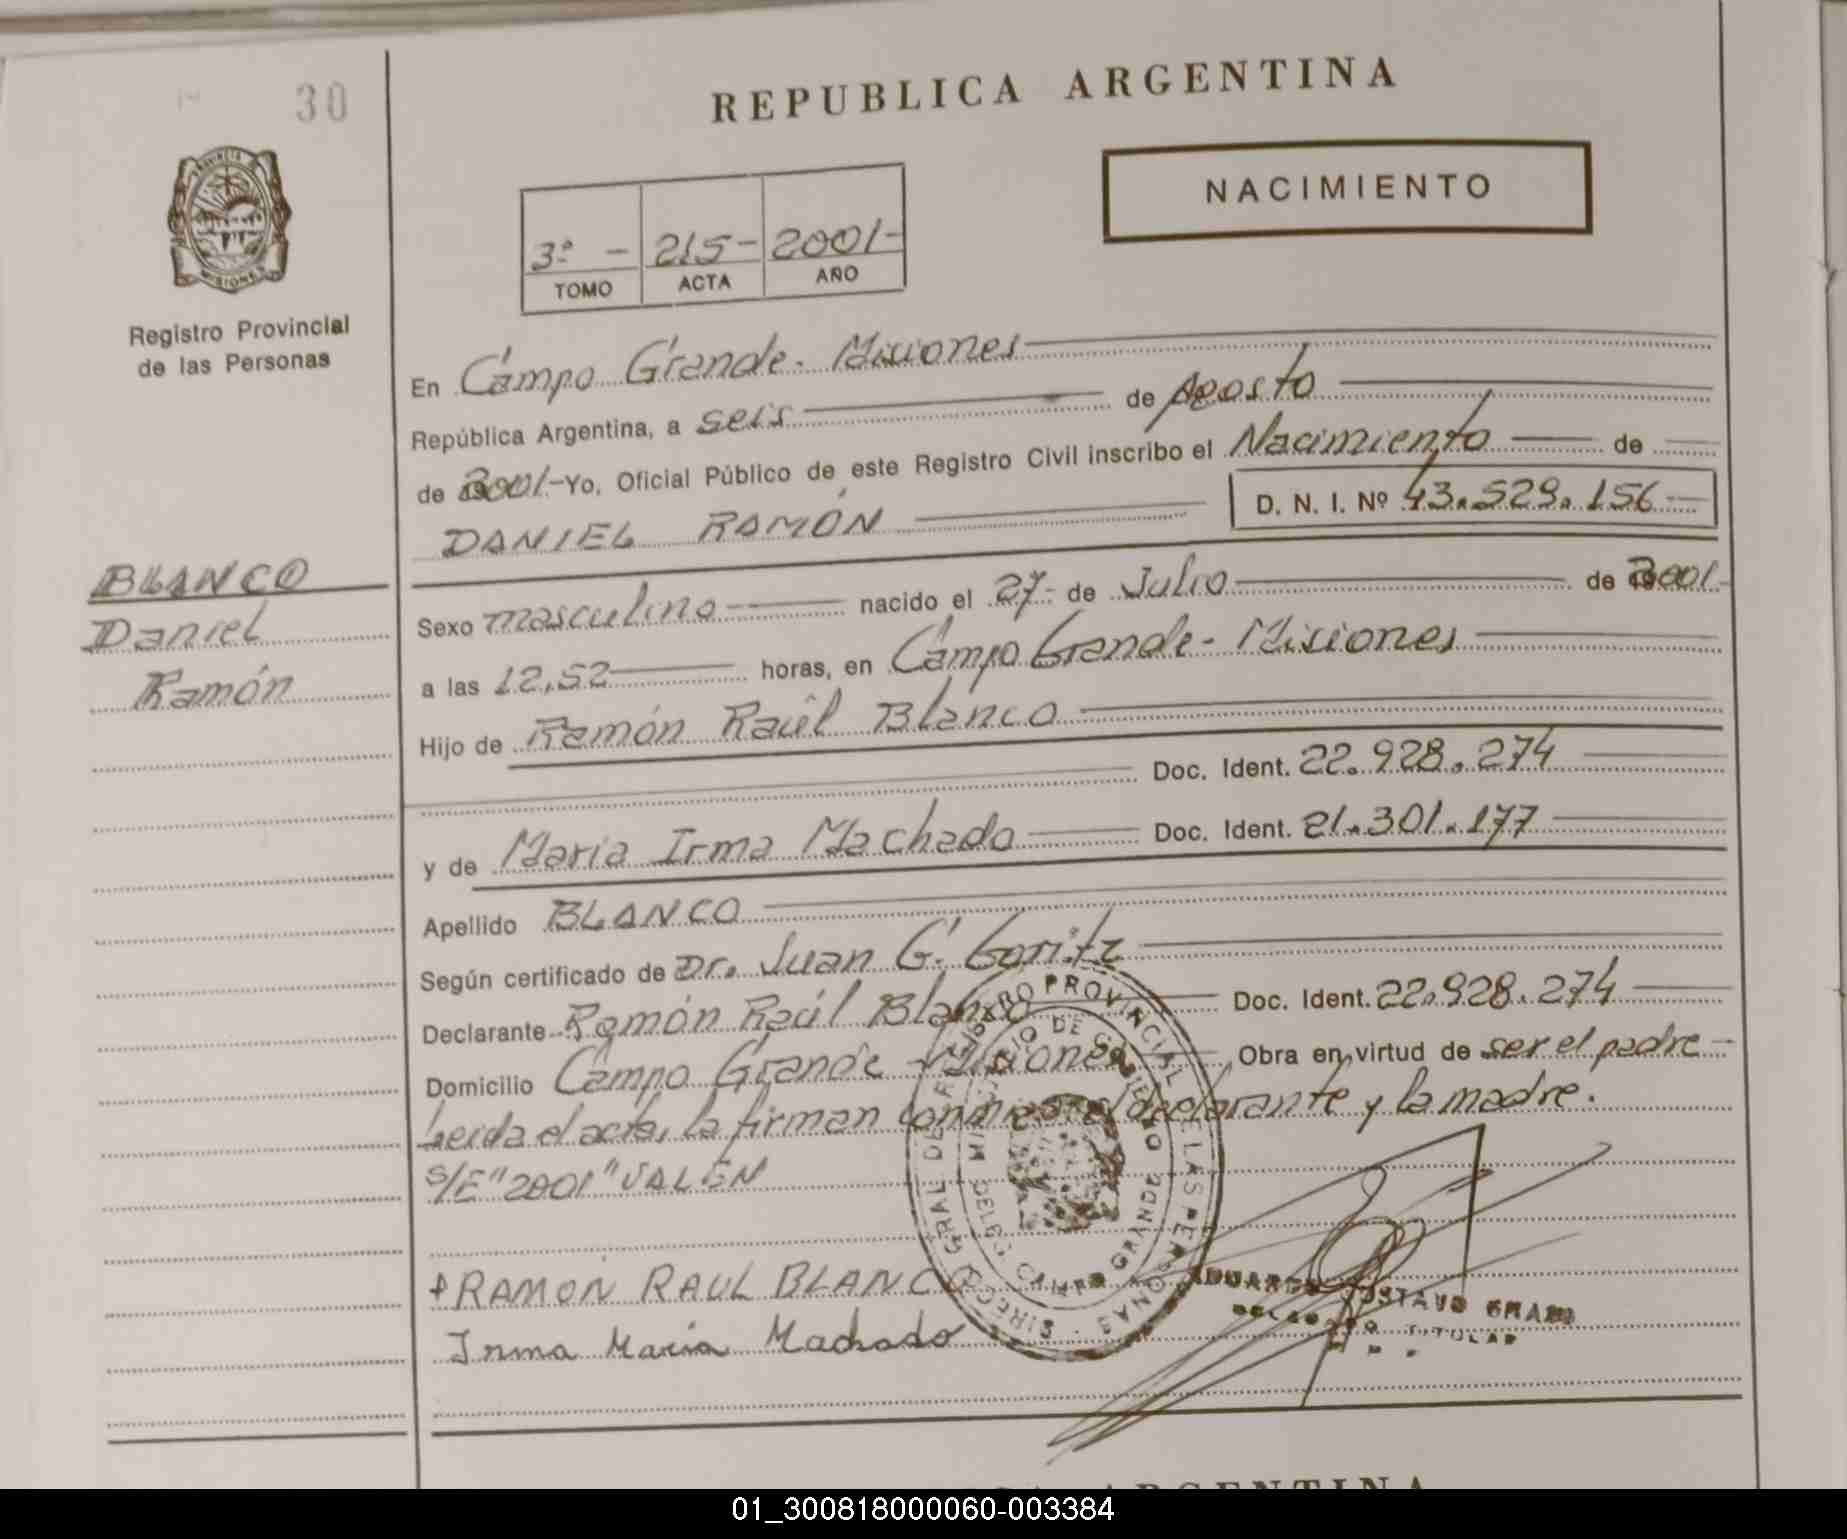 30
REPUBLICA ARGENTINA
NACIMIENTO
PROVINCIA DE
MISIONES
Registro Provincial
de las Personas
3º - 215- 2001-
TOMO ACTA AÑO
En Campo Grande - Misiones
República Argentina, a seis de Agosto
de 2001- Yo, Oficial Público de este Registro Civil inscribo el Nacimiento de
DANIEL RAMÓN D. N. I. Nº 43.529.156
BLANCO
Daniel
Ramón
Sexo masculino nacido el 27- de Julio de 2001-
a las 12,52 horas, en Campo Grande - Misiones
Hijo de Ramón Raúl Blanco
Doc. Ident. 22.928.274
y de María Irma Machado Doc. Ident. 21.301.177
Apellido BLANCO
Según certificado de Dr. Juan G. Goritz
Declarante Ramón Raúl Blanco Doc. Ident. 22.928.274
Domicilio Campo Grande - Misiones Obra en virtud de ser el padre
Leída el acta, la firman conmigo el declarante y la madre.
S/E "2001" VALEN
RAMON RAUL BLANCO
Irma Maria Machado
DIRECC. GRAL. DE REGISTRO PROVINCIAL DE LAS PERSONAS
MINISTERIO DE GOBIERNO
CAMPO GRANDE
EDUARDO GUSTAVO
DELEGADO TITULAR
ARGENTINA
01_300818000060-003384